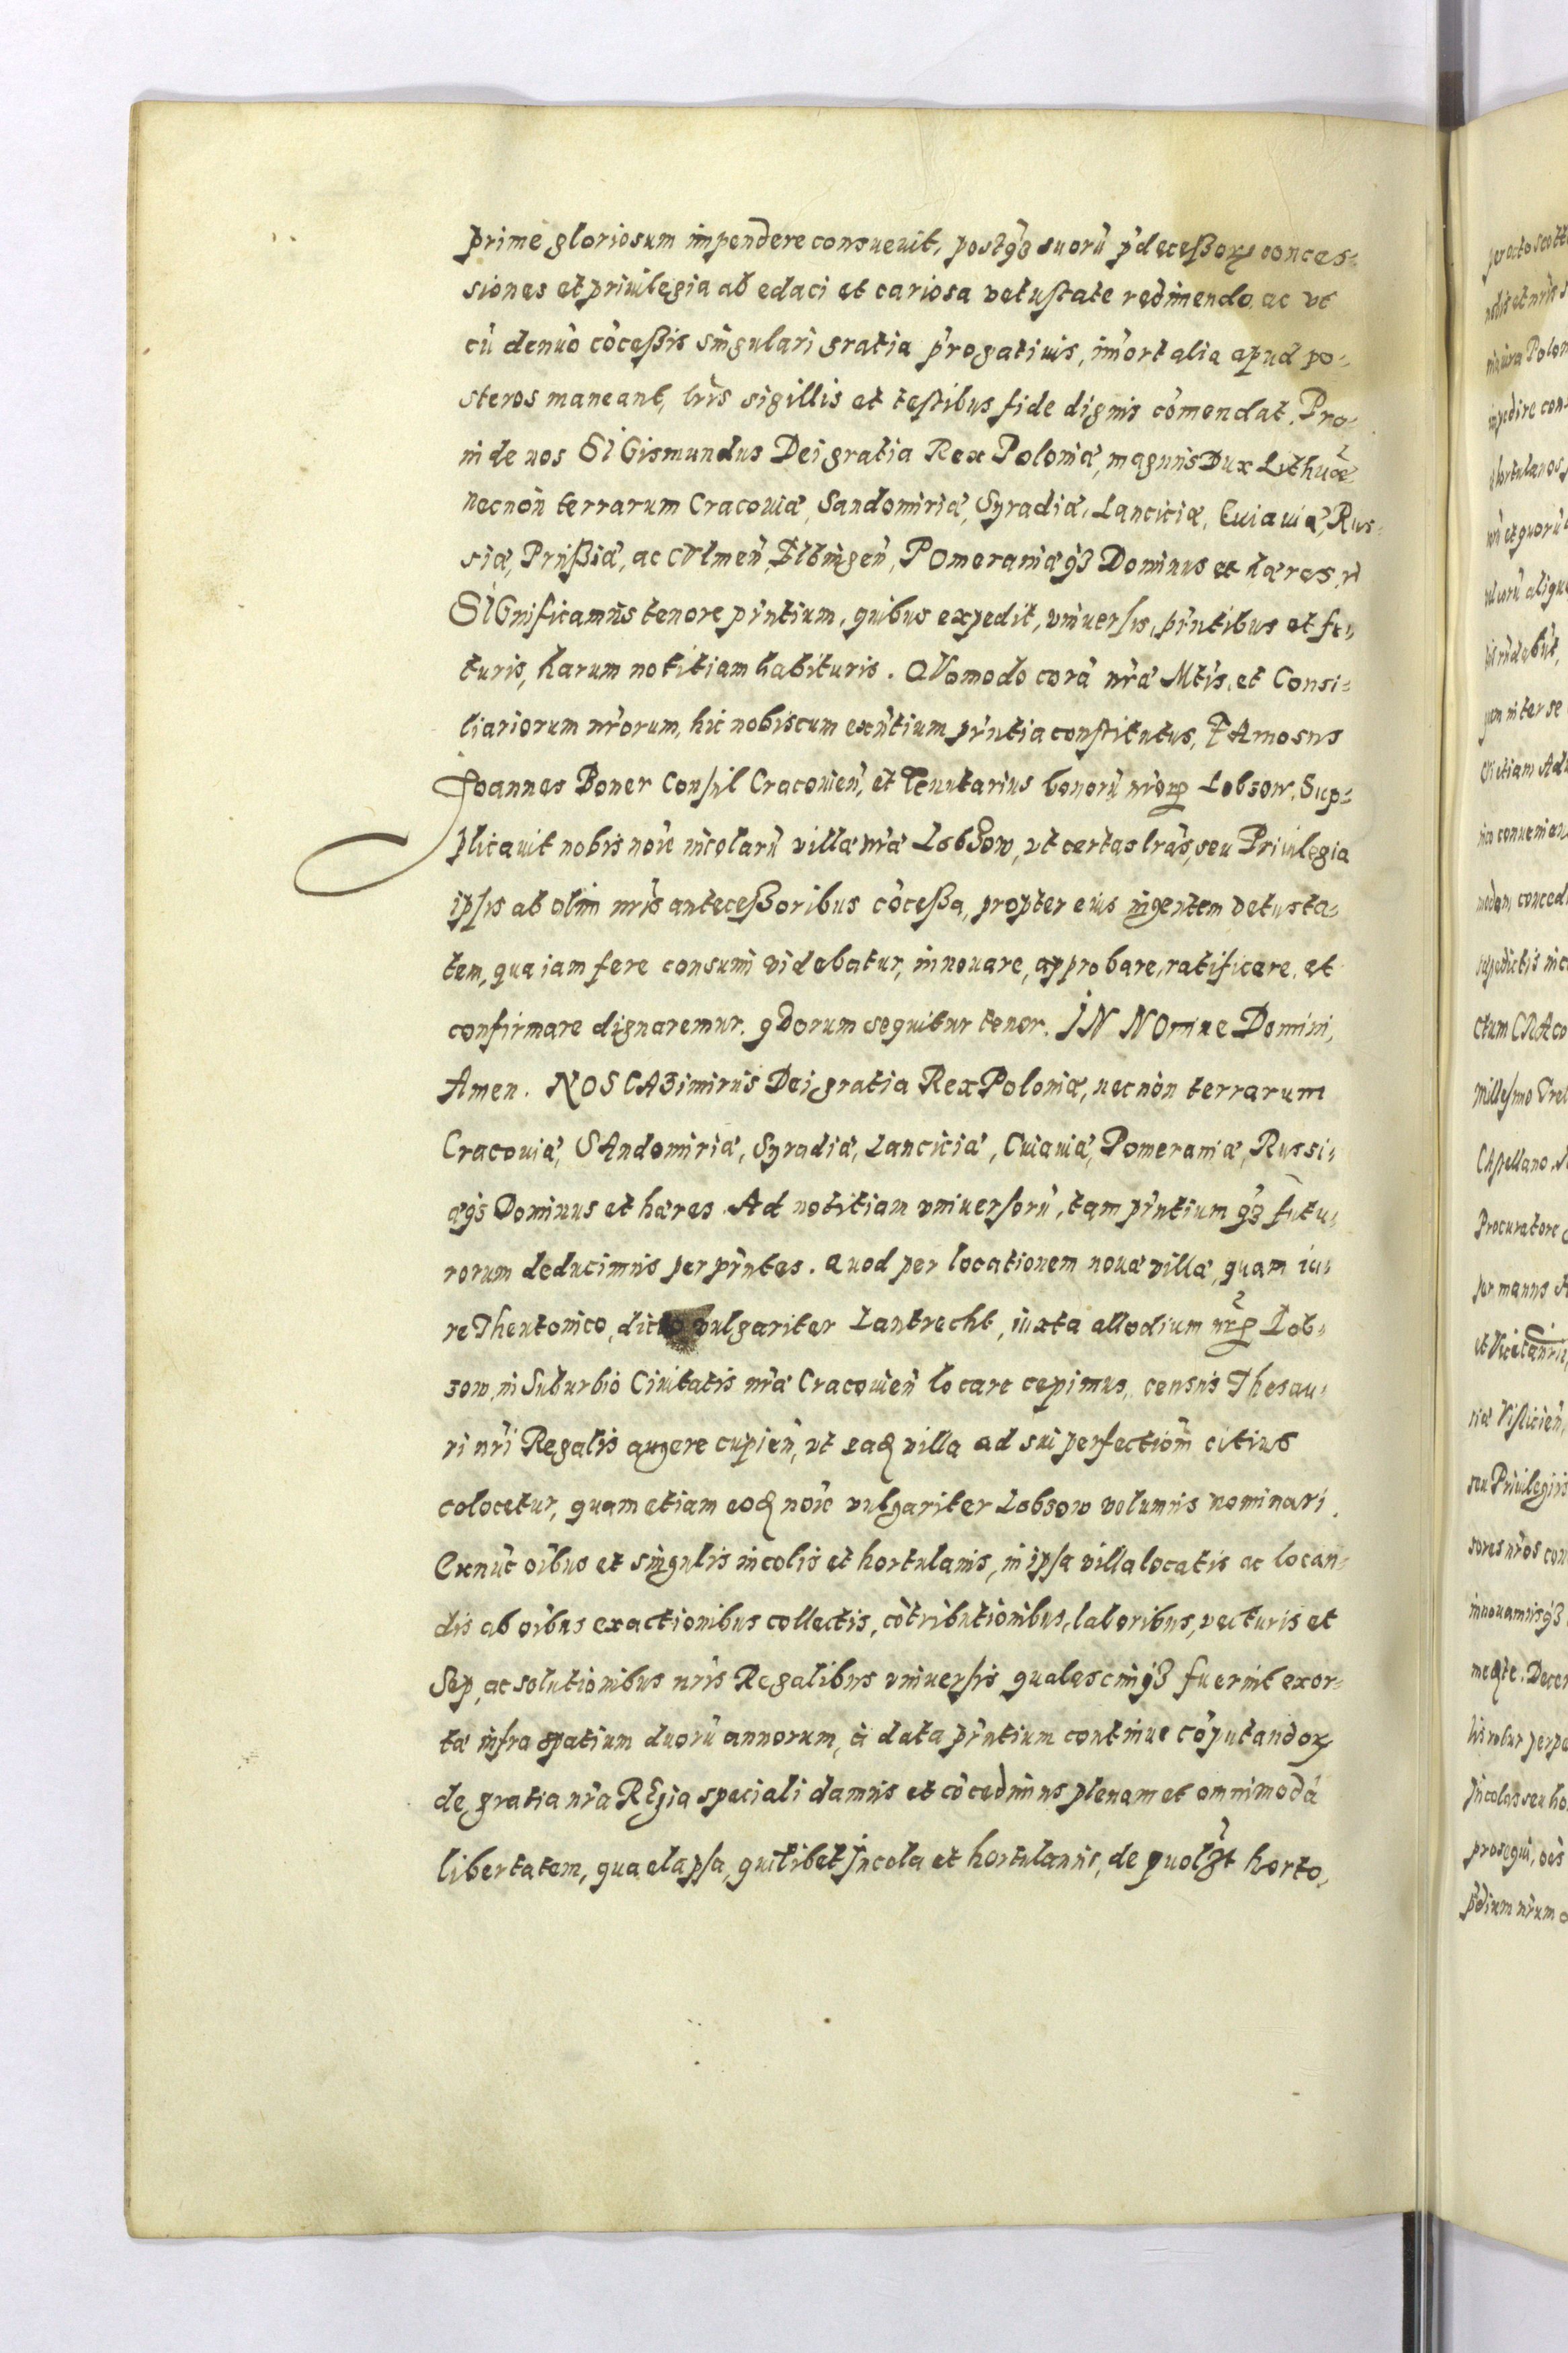 prime gloriosum impendere consuevit, postq̃ȝ suorũ p̃decessorꝝ conces-
siones et priuilegia ab edaci et cariosa vetustate redimendo, ac vt
cũ denuo cõcessis singulari gratia p̃rogatiuis, im̃ortalia apud po-
steros maneant, lr̃is sigillis et testibus fide dignis cõmendat. Pro-
inde nos SIGismundus Dei gratia Rex Poloniæ, magnus Dux Lithuãe
necnon terrarum Cracouiæ, Sandomiriæ, Syradiæ, Lanciciæ, Cuiauiæ, Rus-
siæ, Prussiæ, ac CVlmeñ, Elbingeñ, POmeraniæq̃ȝ Dominus et hæres
SIGnificamus tenore pñtium, quibus expedit, vniuersis, pñtibus et fu-
turis, harum notitiam habituris. QVomodo corã nr̃a Mtĩs, et Consi-
liariorum nr̃orum, hic nobiscum exñtium pñtia constitutus, FAmosus
Joannes Boner Consul Cracouieñ, et Tenutarius bonorũ nr̃oꝝ Lobzow, Sup-
plicauit nobis nõie incolarũ villæ nr̃æ Lobzow, vt certas lr̃as, seu Priuilegia
ipsis ab olim nr̃is antecessoribus cõcessa, propter eius ingentem vetusta-
tem, qua iam fere consumi videbatur, innouare, approbare, ratificare, et
confirmare dignaremur. qVorum sequitur tenor. IN NOmine Domini,
Amen. NOS CAZimirus Dei gratia Rex Poloniæ, necnon terrarum
Cracouiæ, SAndomiriæ, Syradiæ, Lanciciæ, Cuiauiæ, Pomeraniæ, Russi-
æq̃ȝ Dominus et hæres. Ad notitiam vniuersorũ, tam pñtium q̃ȝ futu-
rorum deducimus per pñtes. Quod per locationem nouæ villæ, quam iu-
re Theutonico, dicto vulgariter Lantrecht, iuxta allodium nr̃ꝝ Lob-
zow, in Suburbio Ciuitatis nr̃æ Cracouieñ locare cepimus, census Thesau-
ri nr̃i Regalis augere cupieñ, vt eadꝫ villa ad sui perfectiom̃ citius
colocetur, quam etiam eodꝫ nõie vulgariter Lobzow volumus nominari.
Exnũc oĩbus et singulis incolis et hortulanis, in ipsa villa locatis ac locan-
dis ab oĩbus exactionibus collectis, cõtributionibus, laboribus, vecturis et
Sep, ac solutionibus nr̃is Regalibus vniuersis qualescunq̃ȝ fuerint exor-
tæ infra spatium duorũ annorum, à data pñtium continue cõputandoꝝ
de gratia nr̃a REgia speciali damus et cõcedimus plenam et omnimodã
libertatem, qua elapsa, quilibet Incola et hortulanus, de quolib̃t horto,